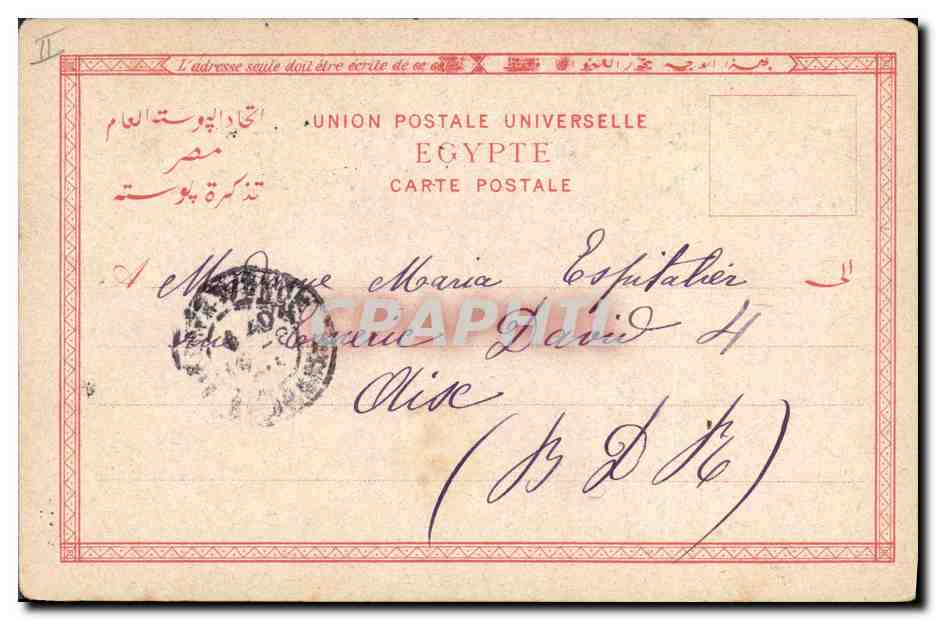 II
L'adresse seule doit être écrite de ce côté
اتحاد الپوسته العام
UNION POSTALE UNIVERSELLE
مصر
EGYPTE
تذكرة پوسته
CARTE POSTALE
A Madame Maria Espitalier الى
rue Emeric David 4
Aix
(B D R)
CPARHTI